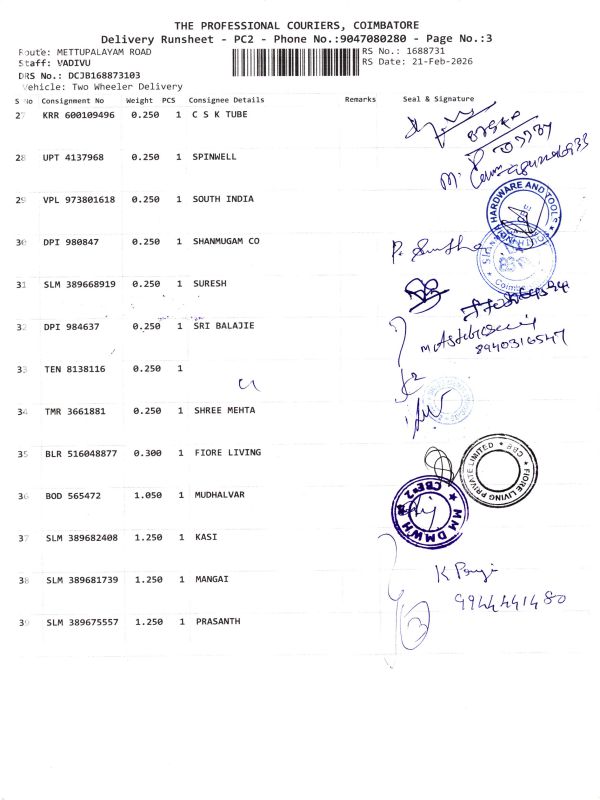 THE PROFESSIONAL COURIERS, COIMBATORE
Delivery Runsheet - PC2 - Phone No.:9047080280 - Page No.:3
Route: METTUPALAYAM ROAD RS No.: 1688731
Staff: VADIVU RS Date: 21-Feb-2026
DRS No.: DCJB168873103
Vehicle: Two Wheeler Delivery
S No Consignment No Weight PCS Consignee Details Remarks Seal & Signature
27 KRR 600109496 0.250 1 C S K TUBE
28 UPT 4137968 0.250 1 SPINWELL
29 VPL 973801618 0.250 1 SOUTH INDIA
30 DPI 980847 0.250 1 SHANMUGAM CO
31 SLM 389668919 0.250 1 SURESH
32 DPI 984637 0.250 1 SRI BALAJIE
8940316547
33 TEN 8138116 0.250 1
34 TMR 3661881 0.250 1 SHREE MEHTA
35 BLR 516048877 0.300 1 FIORE LIVING
FIORE LIVING PRIVATE LIMITED CBE
36 BOD 565472 1.050 1 MUDHALVAR
CBE-2
37 SLM 389682408 1.250 1 KASI
38 SLM 389681739 1.250 1 MANGAI
9944441480
39 SLM 389675557 1.250 1 PRASANTH